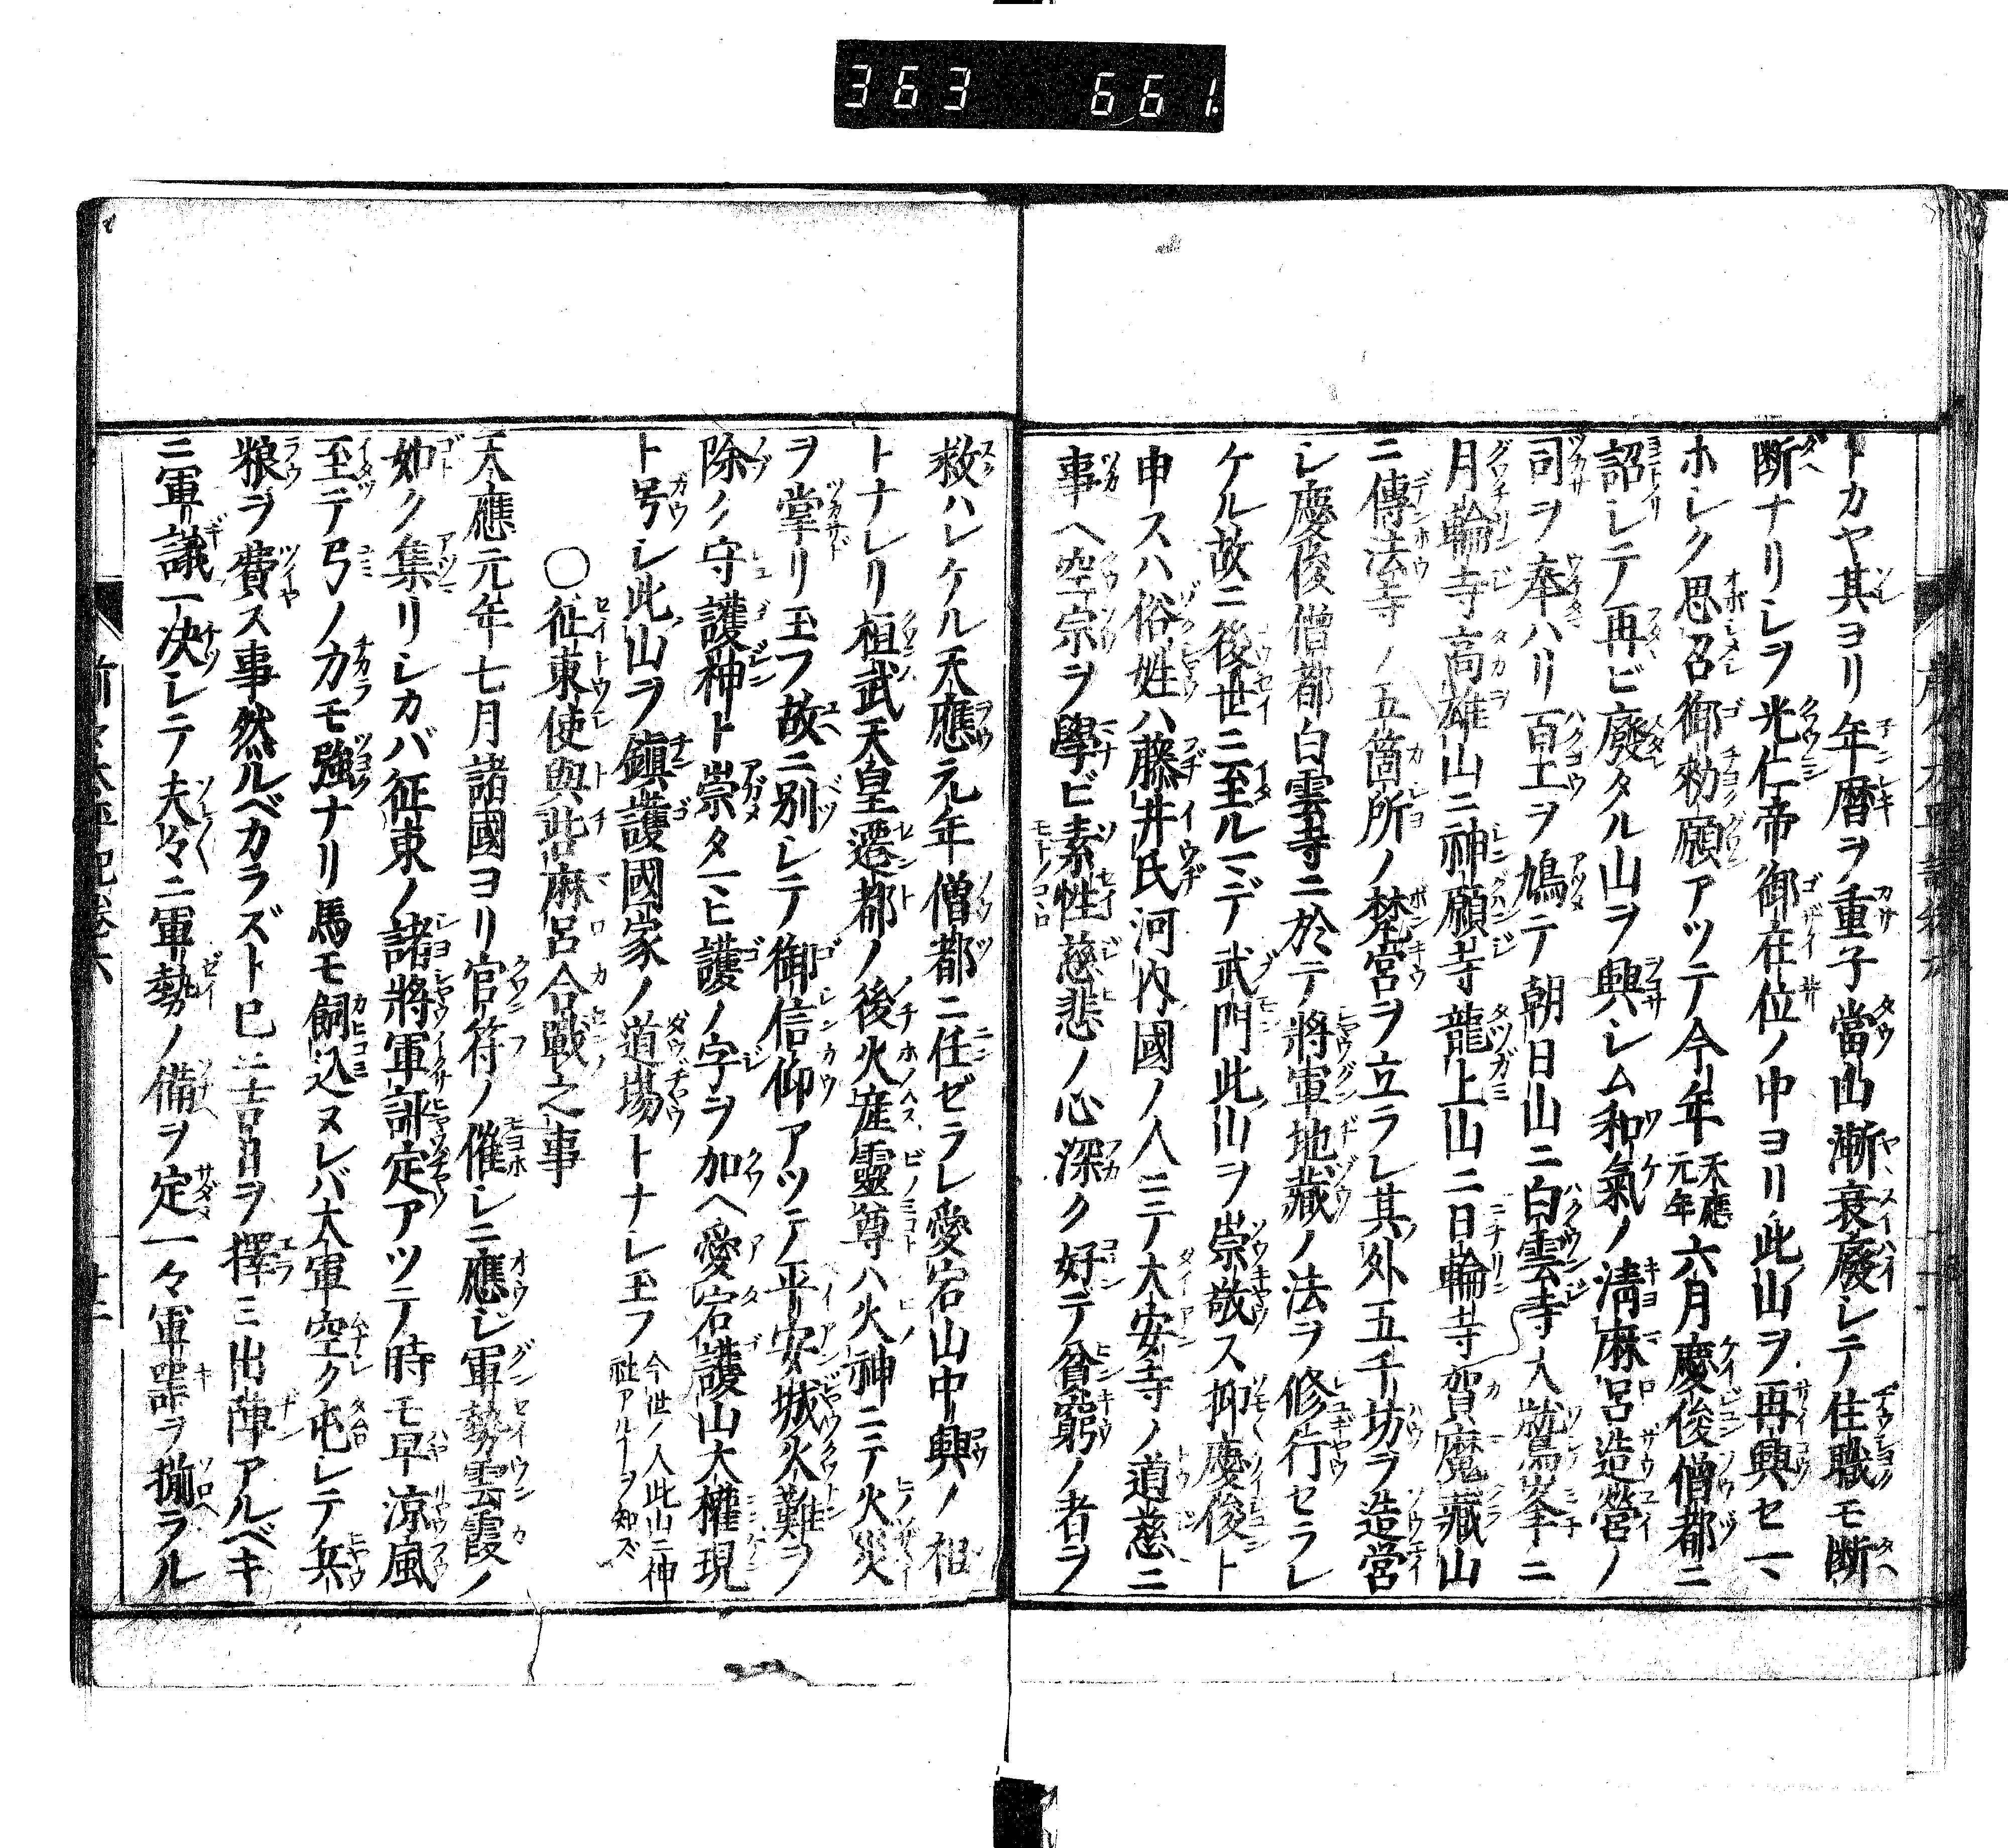 363 661
トカヤ其ヨリ年暦ヲ重子當山漸衰廢シテ住職モ断
断ナリシヲ光仁帝御在位ノ中ヨリ此山ヲ再興セマ
ホシク思召御勅願アツテ今年天應元年六月慶俊僧都ニ
詔シテ再ビ廢タル山ヲ興シム和氣ノ淸麻呂造營ノ
司ヲ奉ハリ百工ヲ鳩テ朝日山ニ白雲寺大鷲峯ニ
月輪寺高雄山ニ神願寺龍上山ニ日輪寺賀魔藏山
ニ傳法寺ノ五箇所ノ梵宮ヲ立ラレ其外五千坊ヲ造營
シ慶俊僧都白雲寺ニ於テ將軍地藏ノ法ヲ修行セラレ
ケル故ニ後世ニ至ルマデ武門此山ヲ崇敬ス抑慶俊ト
申スハ俗姓ハ藤井氏河内國ノ人ニテ大安寺ノ道慈ニ
事ヘ空宗ヲ學ビ素性慈悲ノ心深ク好デ貧窮ノ者ヲ
救ハレケル天應元年僧都ニ任ゼラレ愛宕山中興ノ祖
トナレリ桓武天皇遷都ノ後火産靈尊ハ火神ニテ火災
ヲ掌リ玉フ故ニ別シテ御信仰アツテ平安城火難ヲ
除ノ守護神ト崇タマヒ護ノ字ヲ加ヘ愛宕護山大權現
ト号シ此山ヲ鎭護國家ノ道場トナシ玉フ今世ノ人此山ニ神社アルヿヲ知ズ
○征東使與此麻呂合戰之事
天應元年七月諸國ヨリ官符ノ催シニ應ジ軍勢雲霞ノ
如ク集リシカバ征東ノ諸將軍評定アツテ時モ早涼風
至デ弓ノカモ強ナリ馬モ飼込ヌレバ大軍空ク屯シテ兵
粮ヲ費ス事然ルベカラズト已ニ吉日ヲ擇ミ出陣アルベキ
ニ軍議一决シテ夫々ニ軍勢ノ備ヲ定一々軍器ヲ揃ラル